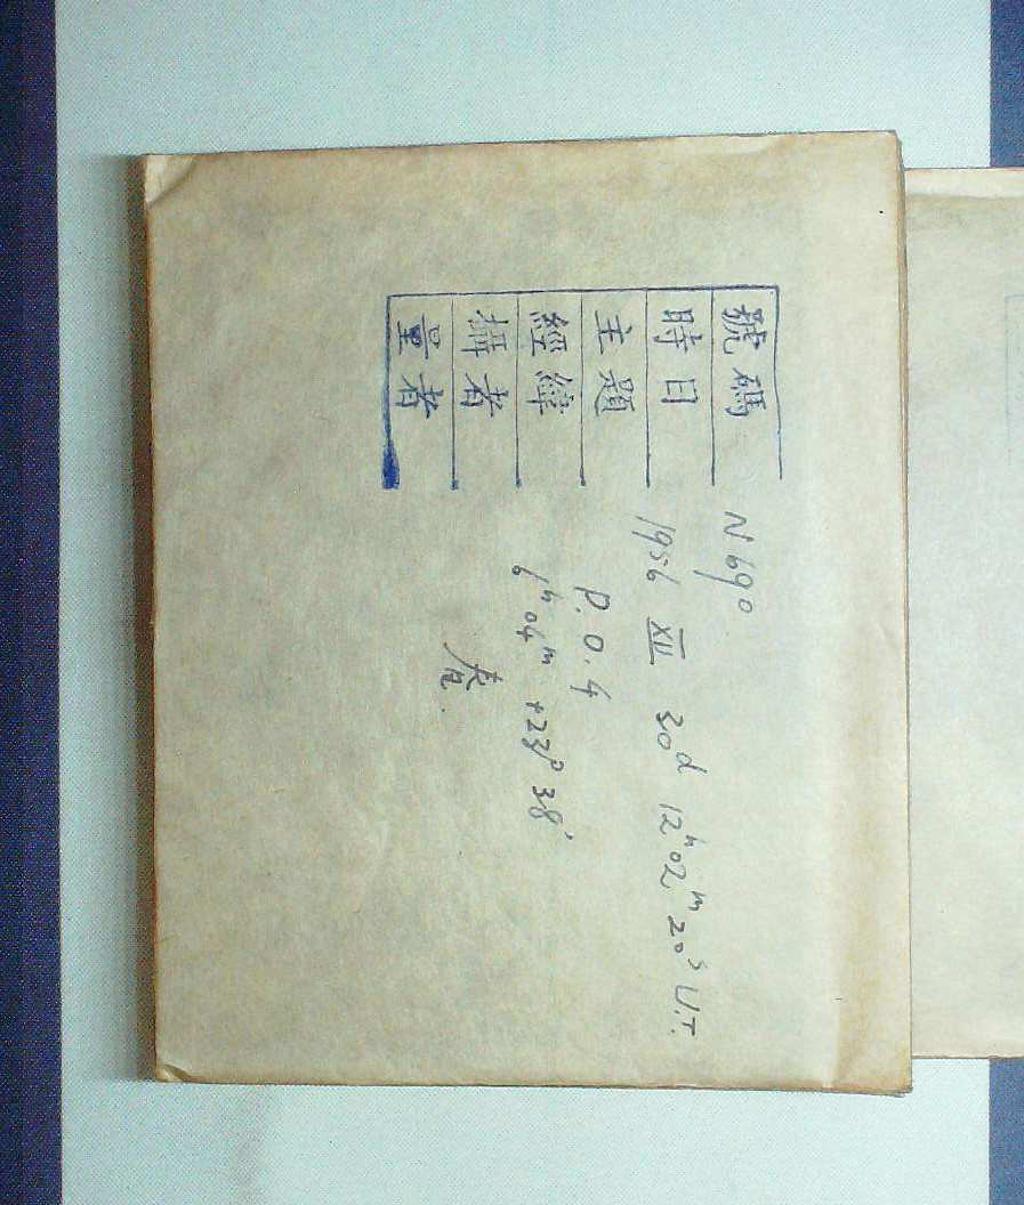 號碼 N 690
時日 1956 XII 30d 12h02m20s U.T.
主題 P.O.4
經緯 6h04m +23° 38'
攝者
量者